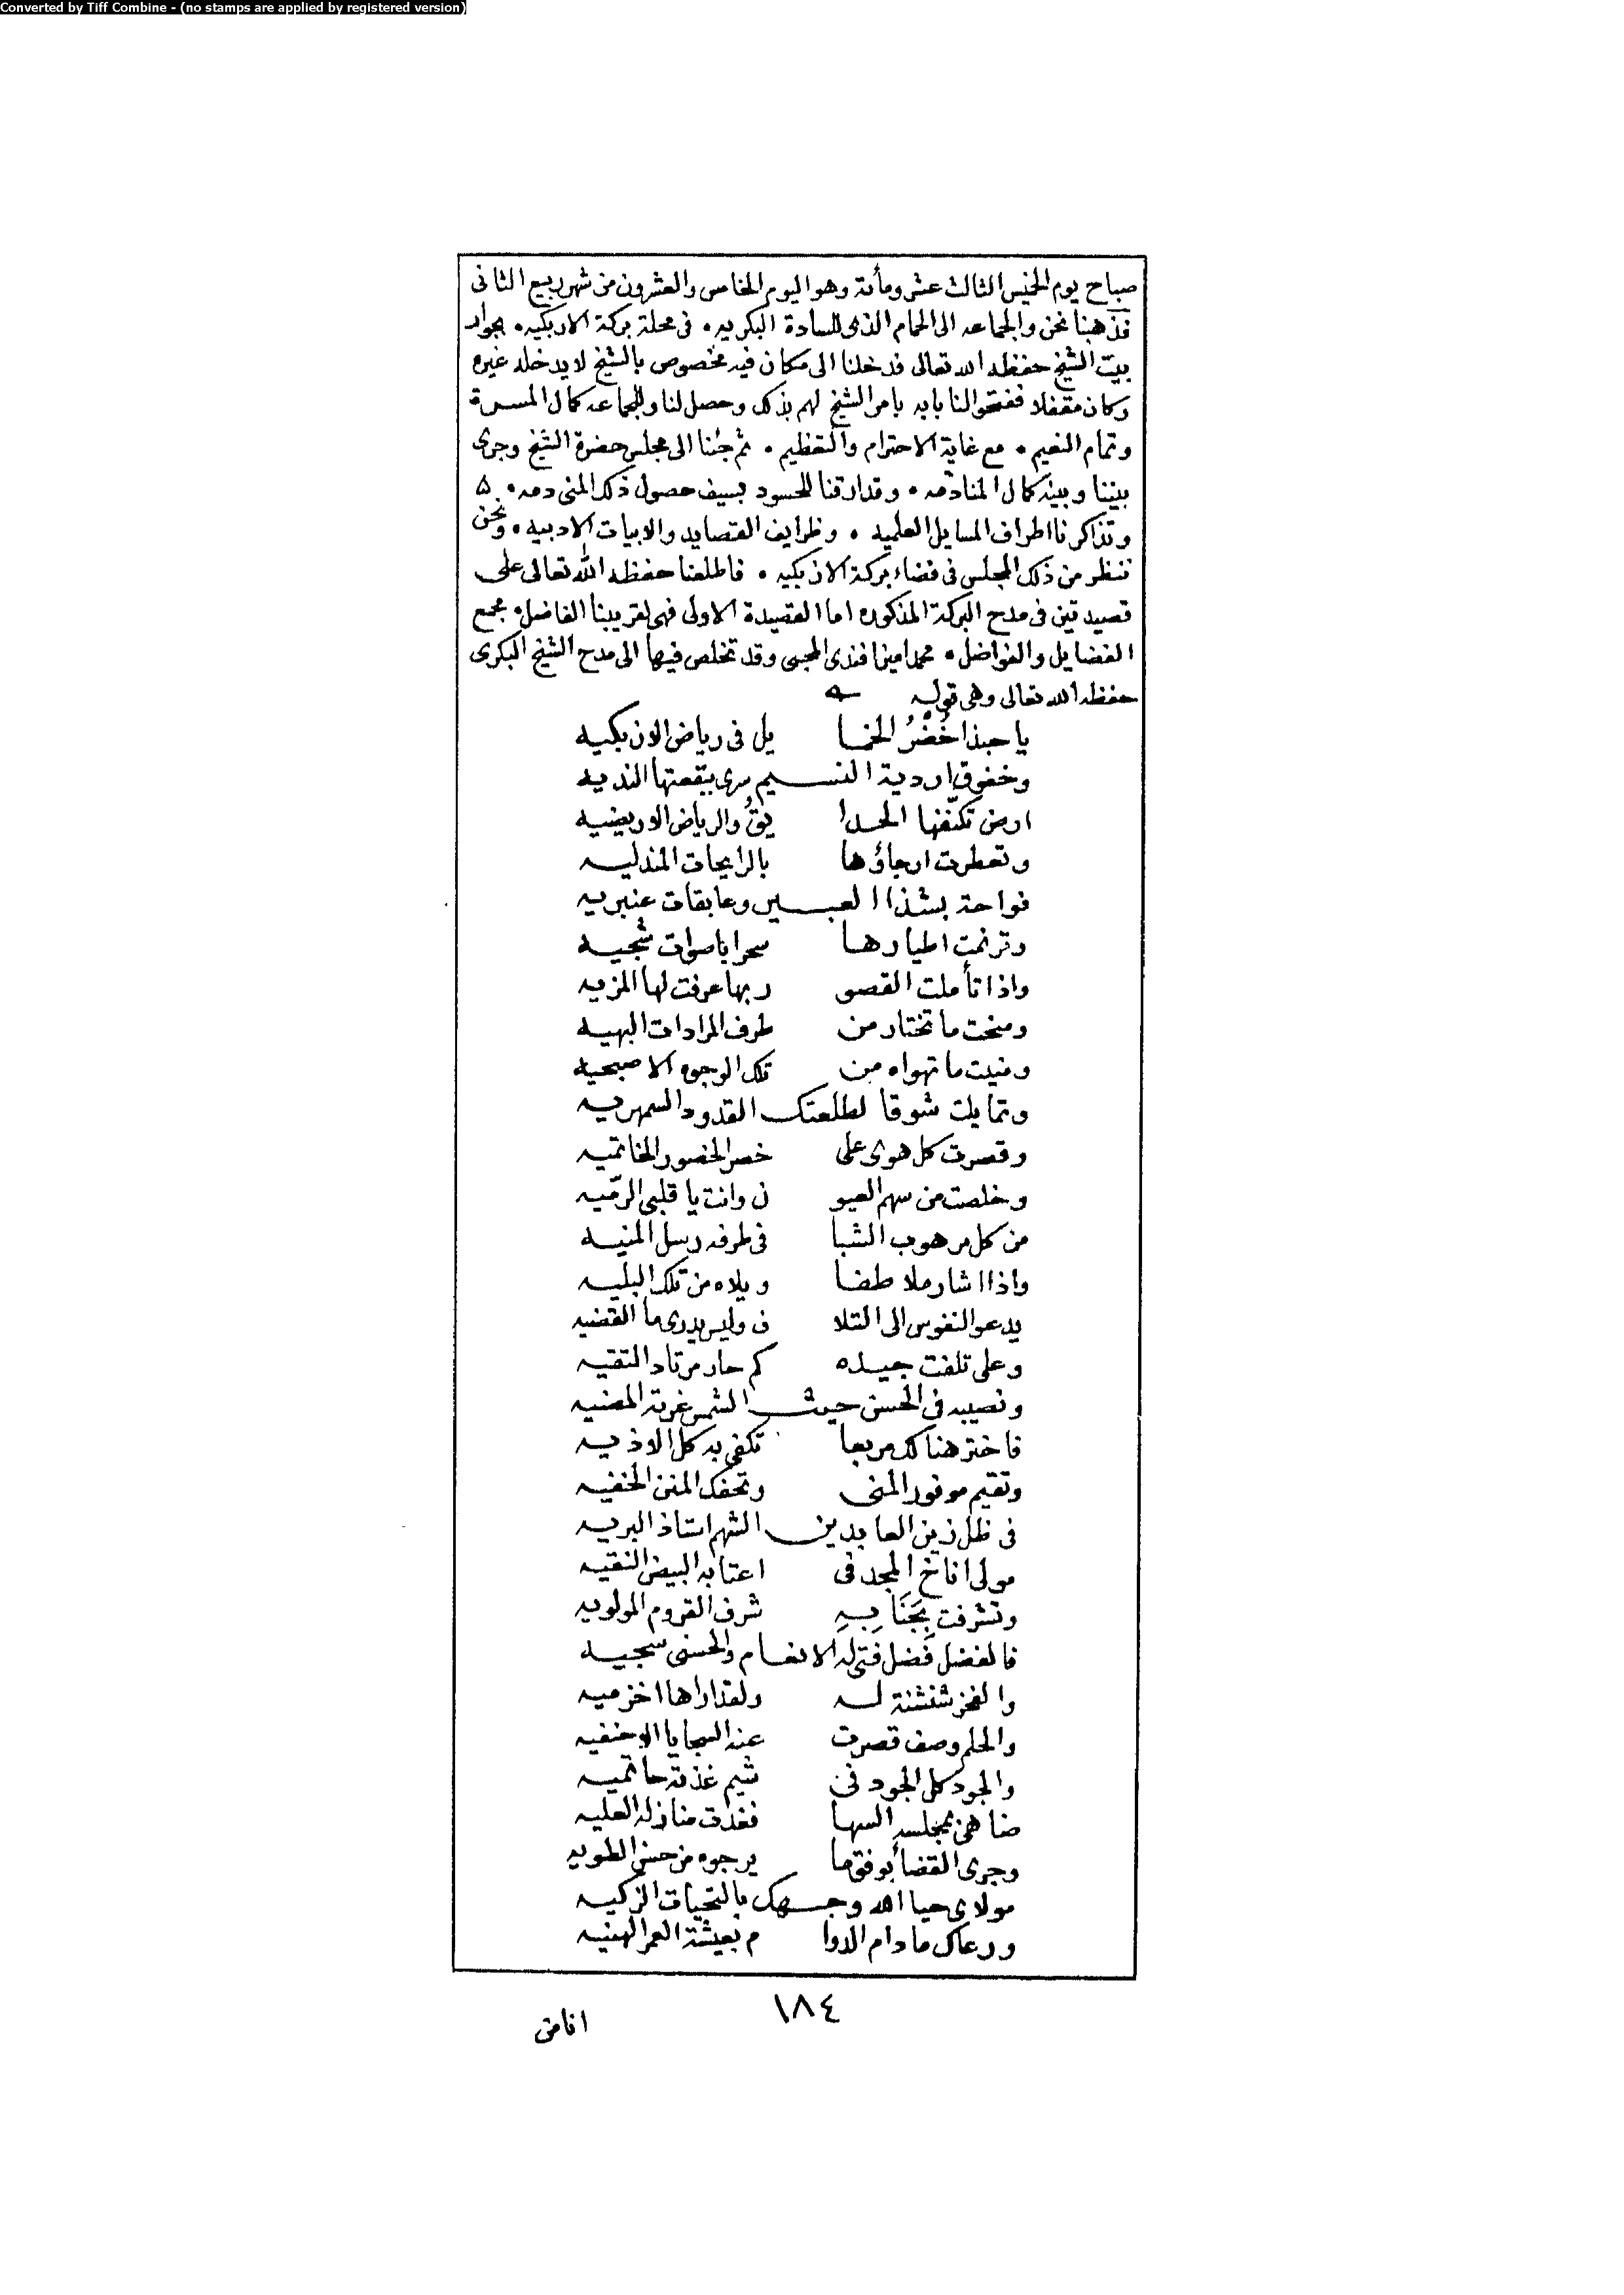 Converted by Tiff Combine - (no stamps are applied by registered version)
صباح يوم الخميس الثالث عشر ومأتة وهو اليوم الخامس والعشرون من شهر ربيع الثانى
فذهبنا نحن والجماعه الى الحمام الذى للسادة البكريه ٠ فى محلة بركة الازبكيه ٠ بجوار
بيت الشيخ حفظه الله تعالى فدخلنا الى مكان فيه مخصوص بالشيخ لا يدخله غيره
وكان مقفلا ففتحوا لنا بابه بامر الشيخ لهم بذلك وحصل لنا وللجماعه كمال المسرة
وتمام النعيم ٠ مع غاية الاحترام والتعظيم ٠ ثم جئنا الى مجلس حضرة الشيخ وجرى
بيننا وبينه كمال المنادمه ٠ وقد ارقنا للحسود بسيف حصول ذلك المنى دمه ٠
وتذاكرنا اطراف المسايل العلميه ٠ وظرايف القصايد والابيات الادبيه ٠ ونحن
ننظر من ذلك المجلس فى فضاء بركة الازبكيه ٠ فاطلعنا حفظه الله تعالى على
قصيدتين فى مدح البركة المذكوره اما القصيدة الاولى فهى لقريبنا الفاضل ٠ مجمع
الفضايل والفواضل ٠ محمد امين افندى المحبى وقد تخلص فيها الى مدح الشيخ البكرى
حفظه الله تعالى وهى قوله
يا حبذا خُضْرُ الخما يل فى رياض الازبكيه
وخفوق اردية النسيم سرى ببقعتها النديه
ارض تكنّفها الحدا يقُ والرياض الاريضيه
وتعطرت ارجاؤها بالرايحات المندليه
فواحة بشذا العبير وعابقات عنبريه
وترنمت اطيارها سحرا باصوات شجيه
واذا تأملت القصو ر بها عرفت لها المزيه
ومنحت ما تختار من طرف المرادات البهيه
ومنيت ما تهواه من تلك الوجوه الاصبحيه
وتمايلت شوقا لطلعتك القدود السمهريه
وقصرت كل هوى على خصر الخصور الخاتميه
وخلصت من سهم العيو ن وانت يا قلبى الرمّيه
من كل مرهوب الشبا فى طرفه رسل المنيه
واذا اشار ملاطفا ويلاه من تلك البليه
يدعو النفوس الى التلا ف وليس يدرى ما القضيه
وعلى تلفت جيده كم حار مرتاد التقيه
ونصيبه فى الحسن حيث الشمس غرته المضيه
فاختر هنالك مربعا تكفى به كل الاذيه
وتقيم موفور المنى وتحفك المنن الخفيه
فى ظل زين العابدين الشهم استاذ البريه
مولى اناخ المجد فى اعتابه البيض النقيه
وتشرفت بِجَنَابِهِ شرف القروم المولويه
فالفضل فضل فتى له الانعام والحسنى سجيه
والفخر شنشنة له ولقد اراها اخزميه
والحلم وصف قصرت عنه السجايا الاحنفيه
والجود كل الجود فى شيم غذته حاتميه
ضاهى بمجلسه السها فغدت منازله العليه
وجرى القضأ بوفق ما يرجوه من حسن الطويه
مولاى حيا الله وجهك بالتحيات الزكيه
ورعاك ما دام الدوا م بعيشة العمر الهنيه
١٨٤
انا من